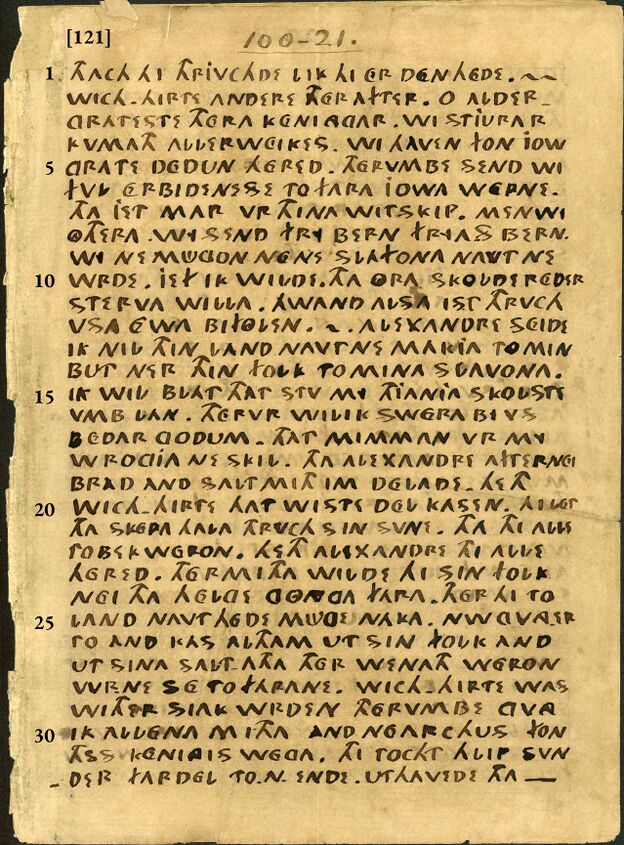 [121]
100-21.
1 THACH HI THRIVCHDE LIK HI ER DEN HEDE. ~~
WICH-HIRTE ANDERE THER AFTER. O ALDER-
GRATESTE THERA KENINGGAR. WI STIURAR
KVMATH ALLERWEIKES. WI HAVEN FON IOW
5 GRATE DEDUN HERED. THERVMBE SEND WI
FVL ERBIDENESSE TO FARA IOWA WEPNE.
THA IET MAR VR THINA WITSKIP. MEN WI
OTHERA. WY SEND FRY BERN FRYAS BERN.
WI NE MUGON NENE SLAFONA NAVT NE
10 WRDE. IEF IK WILDE. THA ORA SKOLDE REDER
STERVA WILLA. HWAND ALSA IST THRVCH
VSA EWA BIFOLEN. ~. ALEXANDRE SEIDE
IK NIL THIN LAND NAVT NE MAKIA TO MIN
BUT NER THIN FOLK TO MINA SLAVONA.
15 IK WIL BLAT THAT STV MY THIANIA SKOLSTE
VMB LAN. THERVR WIL IK SWERA BI VS
BEDAR GODUM. THAT NIMMAN VR MY
WROGIA NE SKIL. THA ALEXANDRE AFTERNEI
BRAD AND SALT MITH IM DELADE. HETH
20 WICH-HIRTE THAT WISTE DEL KASEN. HI LET
THA SKEPA HALA THRVCH SIN SVNE. THA THI ALLE
TOBEK WERON. HETH ALEXANDRE THI ALLE
HERED. THERMITHA WILDE HI SIN FOLK
NEI THA HELGE GONGGA FARA. THER HI TO
25 LAND NAVT HEDE MUGE NAKA. NW GVNGER
TO AND KAS ALTHAM UT SIN FOLK AND
UT SINA SALT.ATHA THER WENATH WERON
WRNE SE TO FARANE. WICH-HIRTE WAS
WITHER SIAK WRDEN THERVMBE GVNG
30 IK ALLENA MITHA AND NEARCHUS FON
THES KENINGGIS WEGA. THI TOCHT HLIP SVN
DER FARDEL TO.N.ENDE. UTHAVEDE THA —